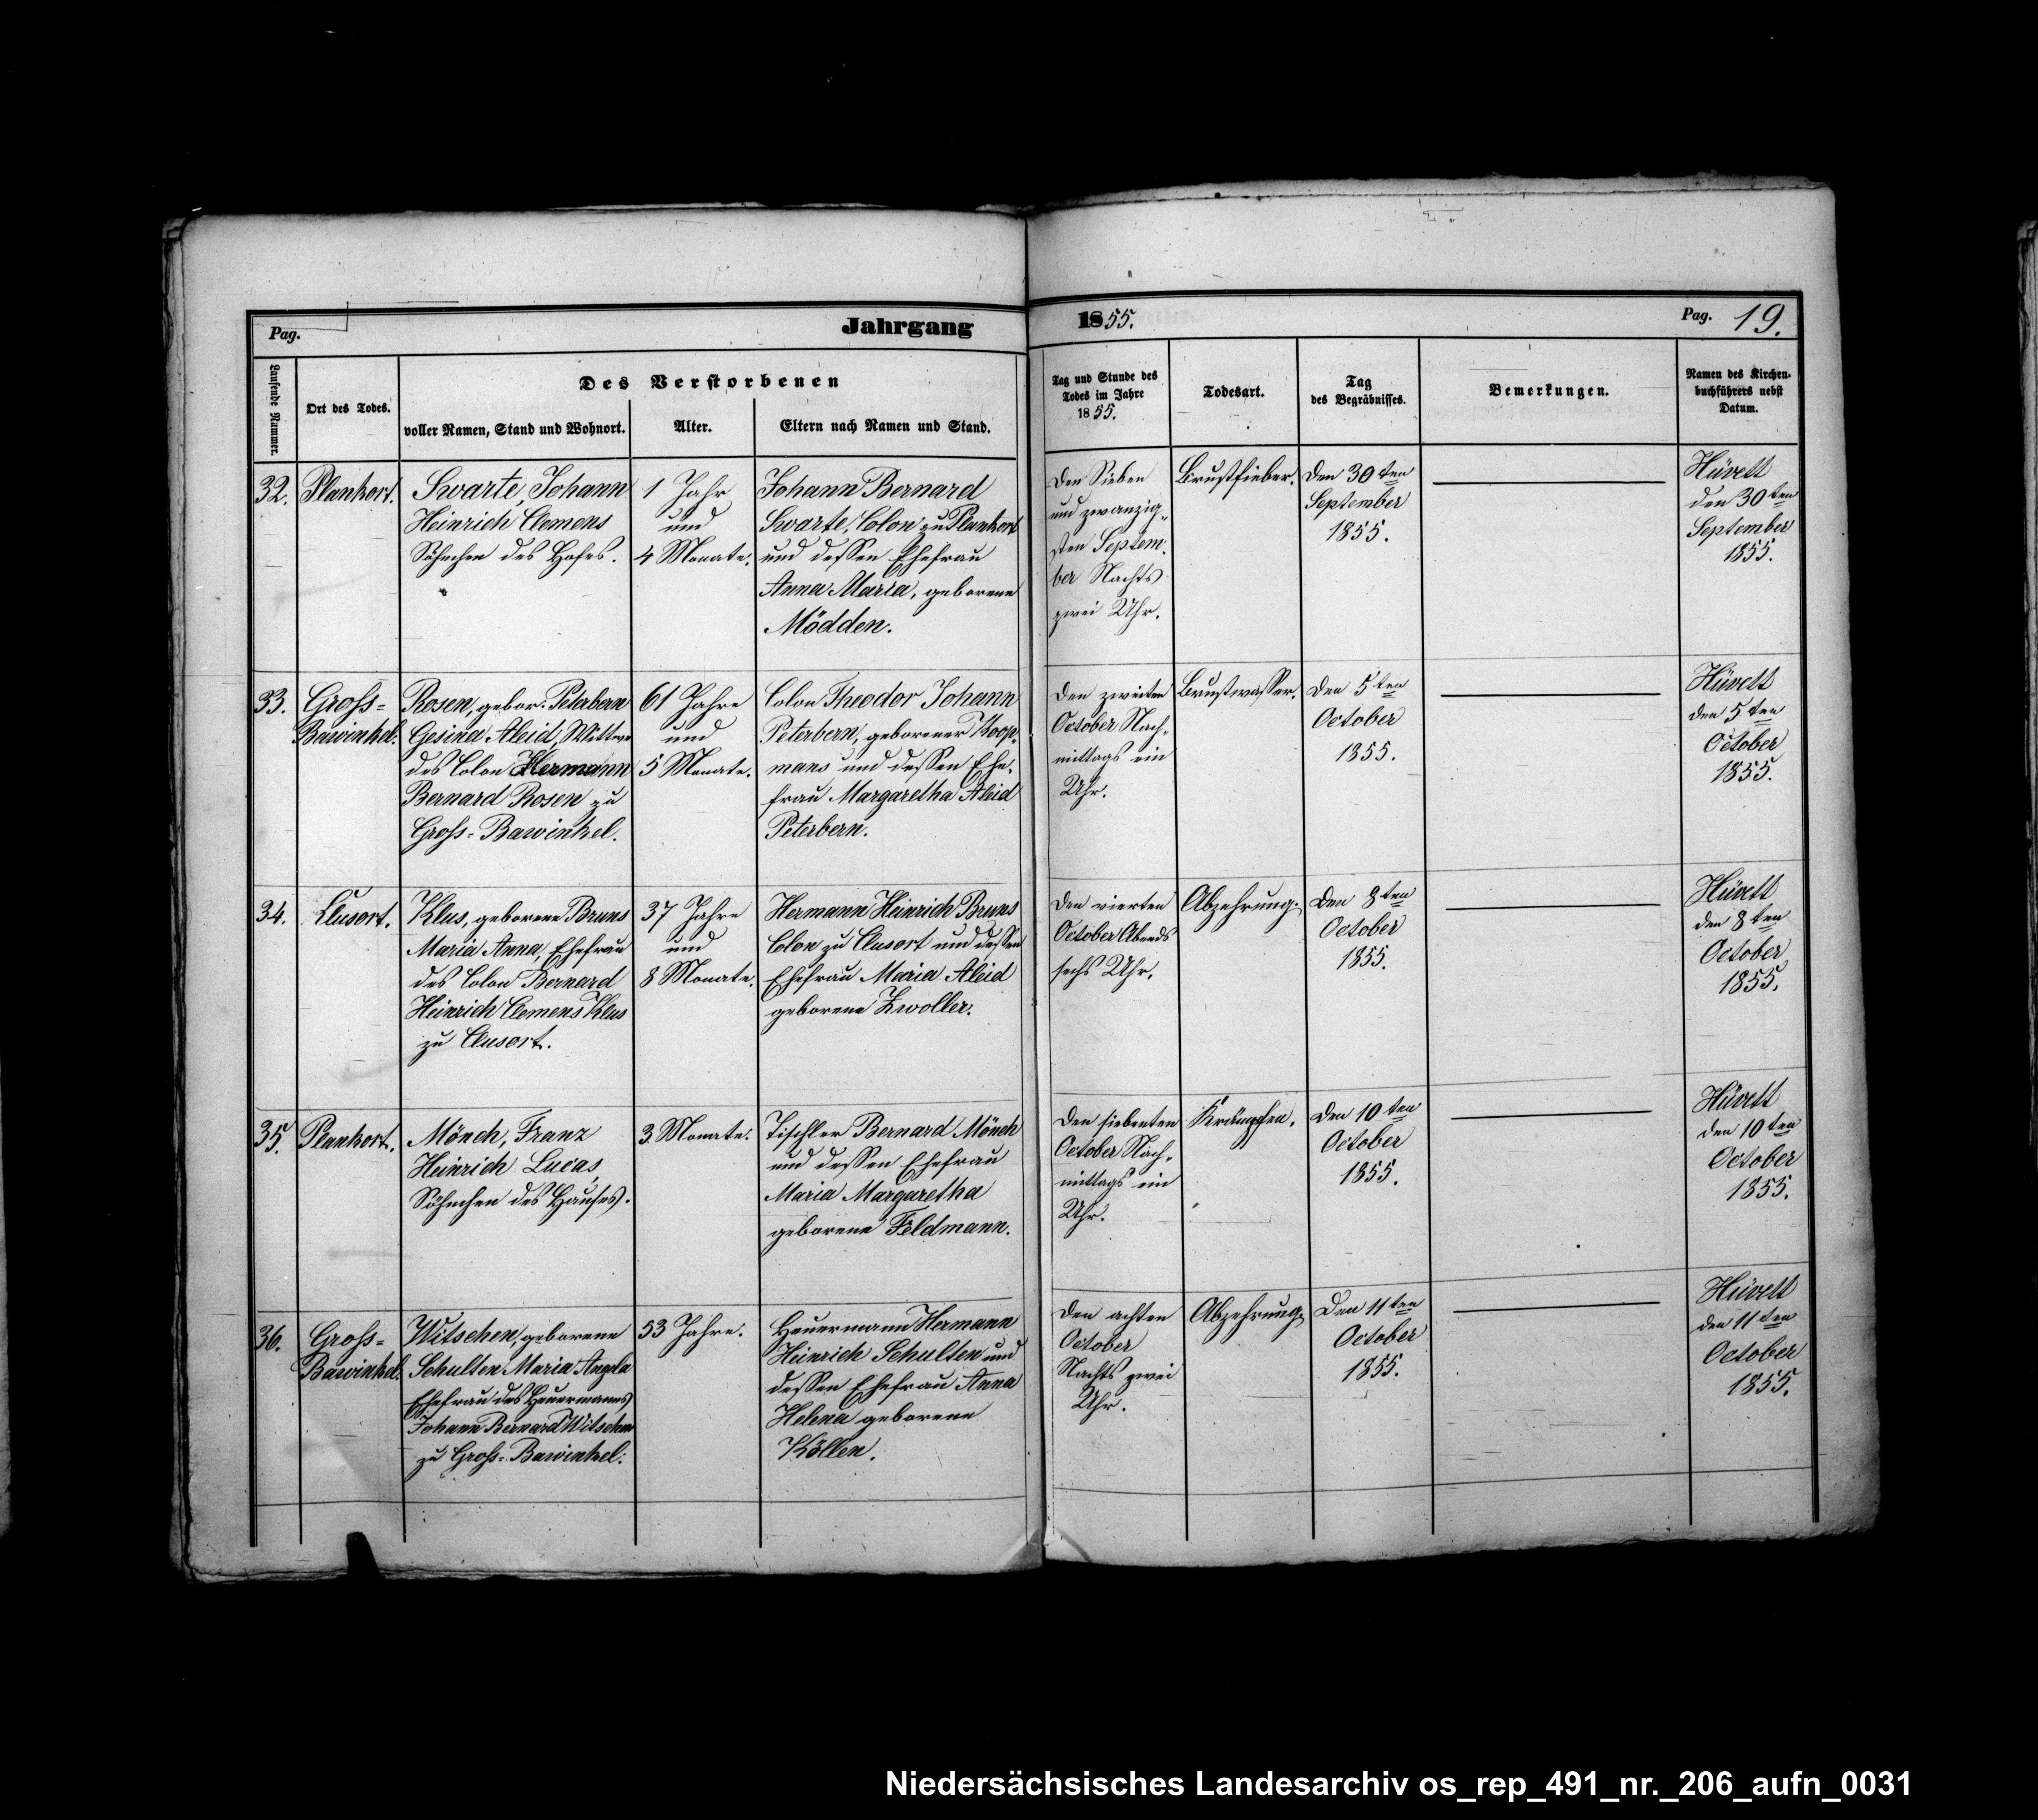 Pag.
Jahrgang
1855.
Pag. 19.
Laufende Nummer.
Ort des Todes.
Des Verstorbenen
voller Namen, Stand und Wohnort.
Alter.
Eltern nach Namen und Stand.
Tag und Stunde des
Todes im Jahre
1855.
Todesart.
Tag
des Begräbnisses.
Bemerkungen.
Namen des Kirchen-
buchführers nebst
Datum.
32.
Plankort.
Swarte, Johann
Heinrich Clemens
Söhnchen des Hofes.
1 Jahr
und
4 Monate.
Johann Bernard
Swarte, Colon zu Plankort
und dessen Ehefrau
Anna Maria, geborene
Mödden.
Den Sieben
und zwanzig-
sten Septem-
ber Nachts
zwei Uhr.
Brustfieber.
Den 30ten
September
1855.
Hüvett
den 30ten
September
1855.
33.
Gross-
Bawinkel.
Rosen, gebor. Peterbern
Gesina Aleid, Wittwe
des Colon Hermann
Bernard Rosen zu
Gross-Bawinkel.
61 Jahre
und
5 Monate.
Colon Theodor Johann
Peterbern, geborener Koop-
mans und dessen Ehe-
frau Margaretha Aleid
Peterbern.
Den zweiten
October Nach-
mittags ein
Uhr.
Brustwasser.
Den 5ten
October
1855.
Hüvett
den 5ten
October
1855.
34.
Clusort.
Klus, geborene Bruns
Maria Anna, Ehefrau
des Colon Bernard
Heinrich Clemens Klus
zu Clusort.
37 Jahre
und
8 Monate.
Hermann Heinrich Bruns
Colon zu Clusort und dessen
Ehefrau Maria Aleid
geborene Zwoller.
Den vierten
October Abends
sechs Uhr.
Abzehrung.
Den 8ten
October
1855.
Hüvett
den 8ten
October
1855.
35.
Plankort.
Mönch, Franz
Heinrich Lucas
Söhnchen des Hauses.
3 Monate.
Tischler Bernard Mönch
und dessen Ehefrau
Maria Margaretha
geborene Feldmann.
Den siebenten
October Nach-
mittags ein
Uhr.
Krämpfen.
Den 10ten
October
1855.
Hüvett
den 10ten
October
1855.
36.
Gross-
Bawinkel.
Witschen, geborene
Schulten Maria Angela
Ehefrau des Heuermannes
Johann Bernard Witschen
zu Gross-Bawinkel.
53 Jahre.
Heuermann Hermann
Heinrich Schulten und
dessen Ehefrau Anna
Helena geborene
Köllen.
Den achten
October
Nachts zwei
Uhr.
Abzehrung.
Den 11ten
October
1855.
Hüvett
den 11ten
October
1855.
Niedersächsisches Landesarchiv os_rep_491_nr._206_aufn_0031